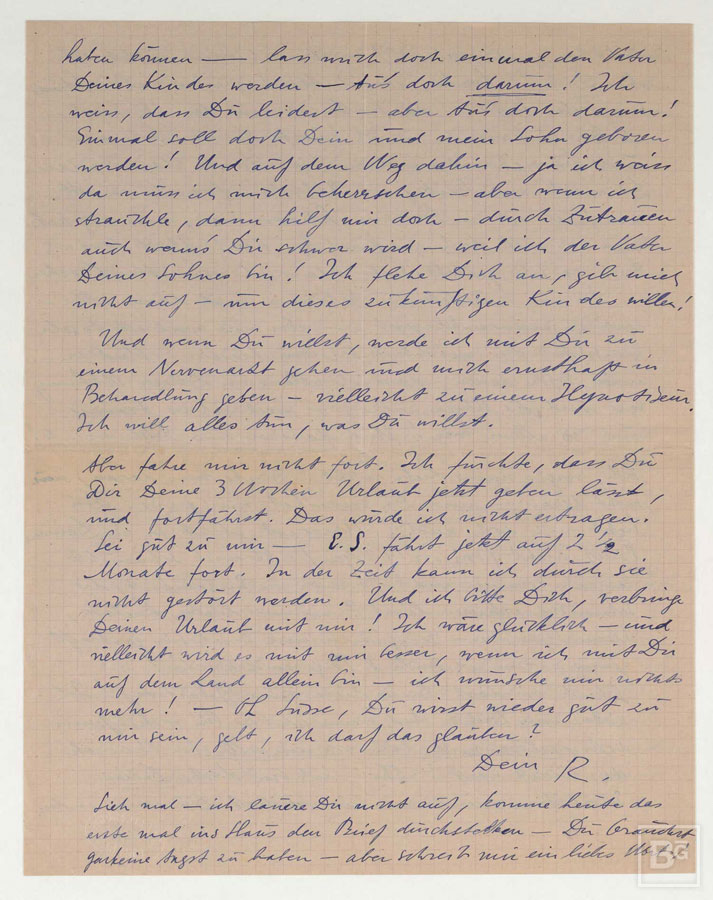 haben können — lass mich doch einmal den Vater
Deines Kindes werden — tu's doch darum! Ich
weiss, dass Du leidest — aber tu's doch darum!
Einmal soll doch Dein und mein Sohn geboren
werden! Und auf dem Weg dahin — ja ich weiss
da muss ich mich beherrschen — aber wenn ich
strauchle, dann hilf mir doch — durch Zutrauen
auch wenn's Dir schwer wird — weil ich der Vater
Deines Sohnes bin! Ich flehe Dich an, gib mich
nicht auf — um dieses zukünftigen Kindes willen!
Und wenn Du willst, werde ich mit Dir zu
einem Nervenarzt gehen und mich ernsthaft in
Behandlung geben — vielleicht zu einem Hypnotiseur.
Ich will alles tun, was Du willst.
Aber fahre mir nicht fort. Ich fürchte, dass Du
Dir Deine 3 Wochen Urlaub jetzt geben lässt,
und fortfährst. Das würde ich nicht ertragen.
Sei gut zu mir — E.S. fährt jetzt auf 2 1/2
Monate fort. In der Zeit kann ich durch sie
nicht gestört werden. Und ich bitte Dich, verbringe
Deinen Urlaub mit mir! Ich wäre glücklich — und
vielleicht wird es mit mir besser, wenn ich mit Dir
auf dem Land allein bin — ich wünsche mir nichts
mehr! — Süsse, Du wirst wieder gut zu
mir sein, gelt, ich darf das glauben?
Dein R.
Sieh mal — ich lauere Dir nicht auf, komme heute das
erste mal ins Haus den Brief durchstecken — Du brauchst
garkeine Angst zu haben — aber schreib mir ein liebes Wort!
BG